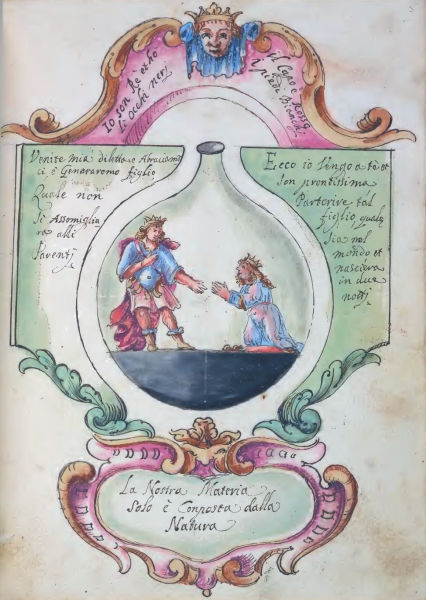 Io son Rè et ho
li occhi neri
il Capo è Rosso
i piedi Bianchi
Venite mia diletta e Abraciamo
ci è Generaremo figlio
Quale non
Si Assomiglia
ra alli
Parenti
Ecco io Vengo a te et
son prontissima
Partorire tal
figlio quale
sia nel
mondo et
nascera
in due
notti
La Nostra Materia
Solo è Conposta dalla
Natura